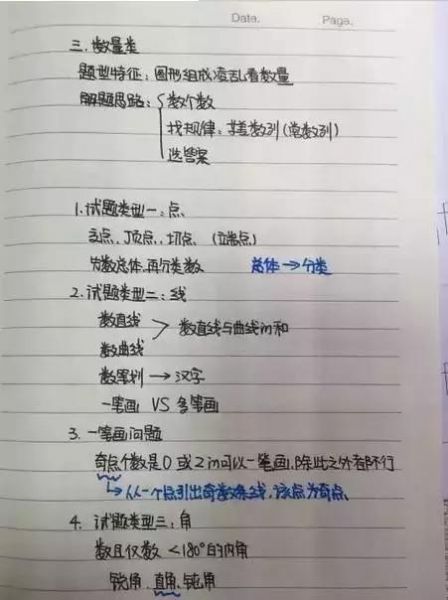 Date.
Page.
三、数量类
题型特征：图形组成凌乱看数量
解题思路：数个数
找规律：等差数列（常数列）
选答案
1.试题类型一：点
交点、顶点、切点、（端点）
先数总体，再分类数 总体→分类
2.试题类型二：线
数直线
数直线与曲线的和
数曲线
数笔划→汉字
一笔画 VS 多笔画
3. 一笔画问题
奇点个数是0或2的可以一笔画，除此之外都不行
从一个点引出奇数条线，该点为奇点
4. 试题类型三：角
数且仅数<180°的内角
锐角、直角、钝角